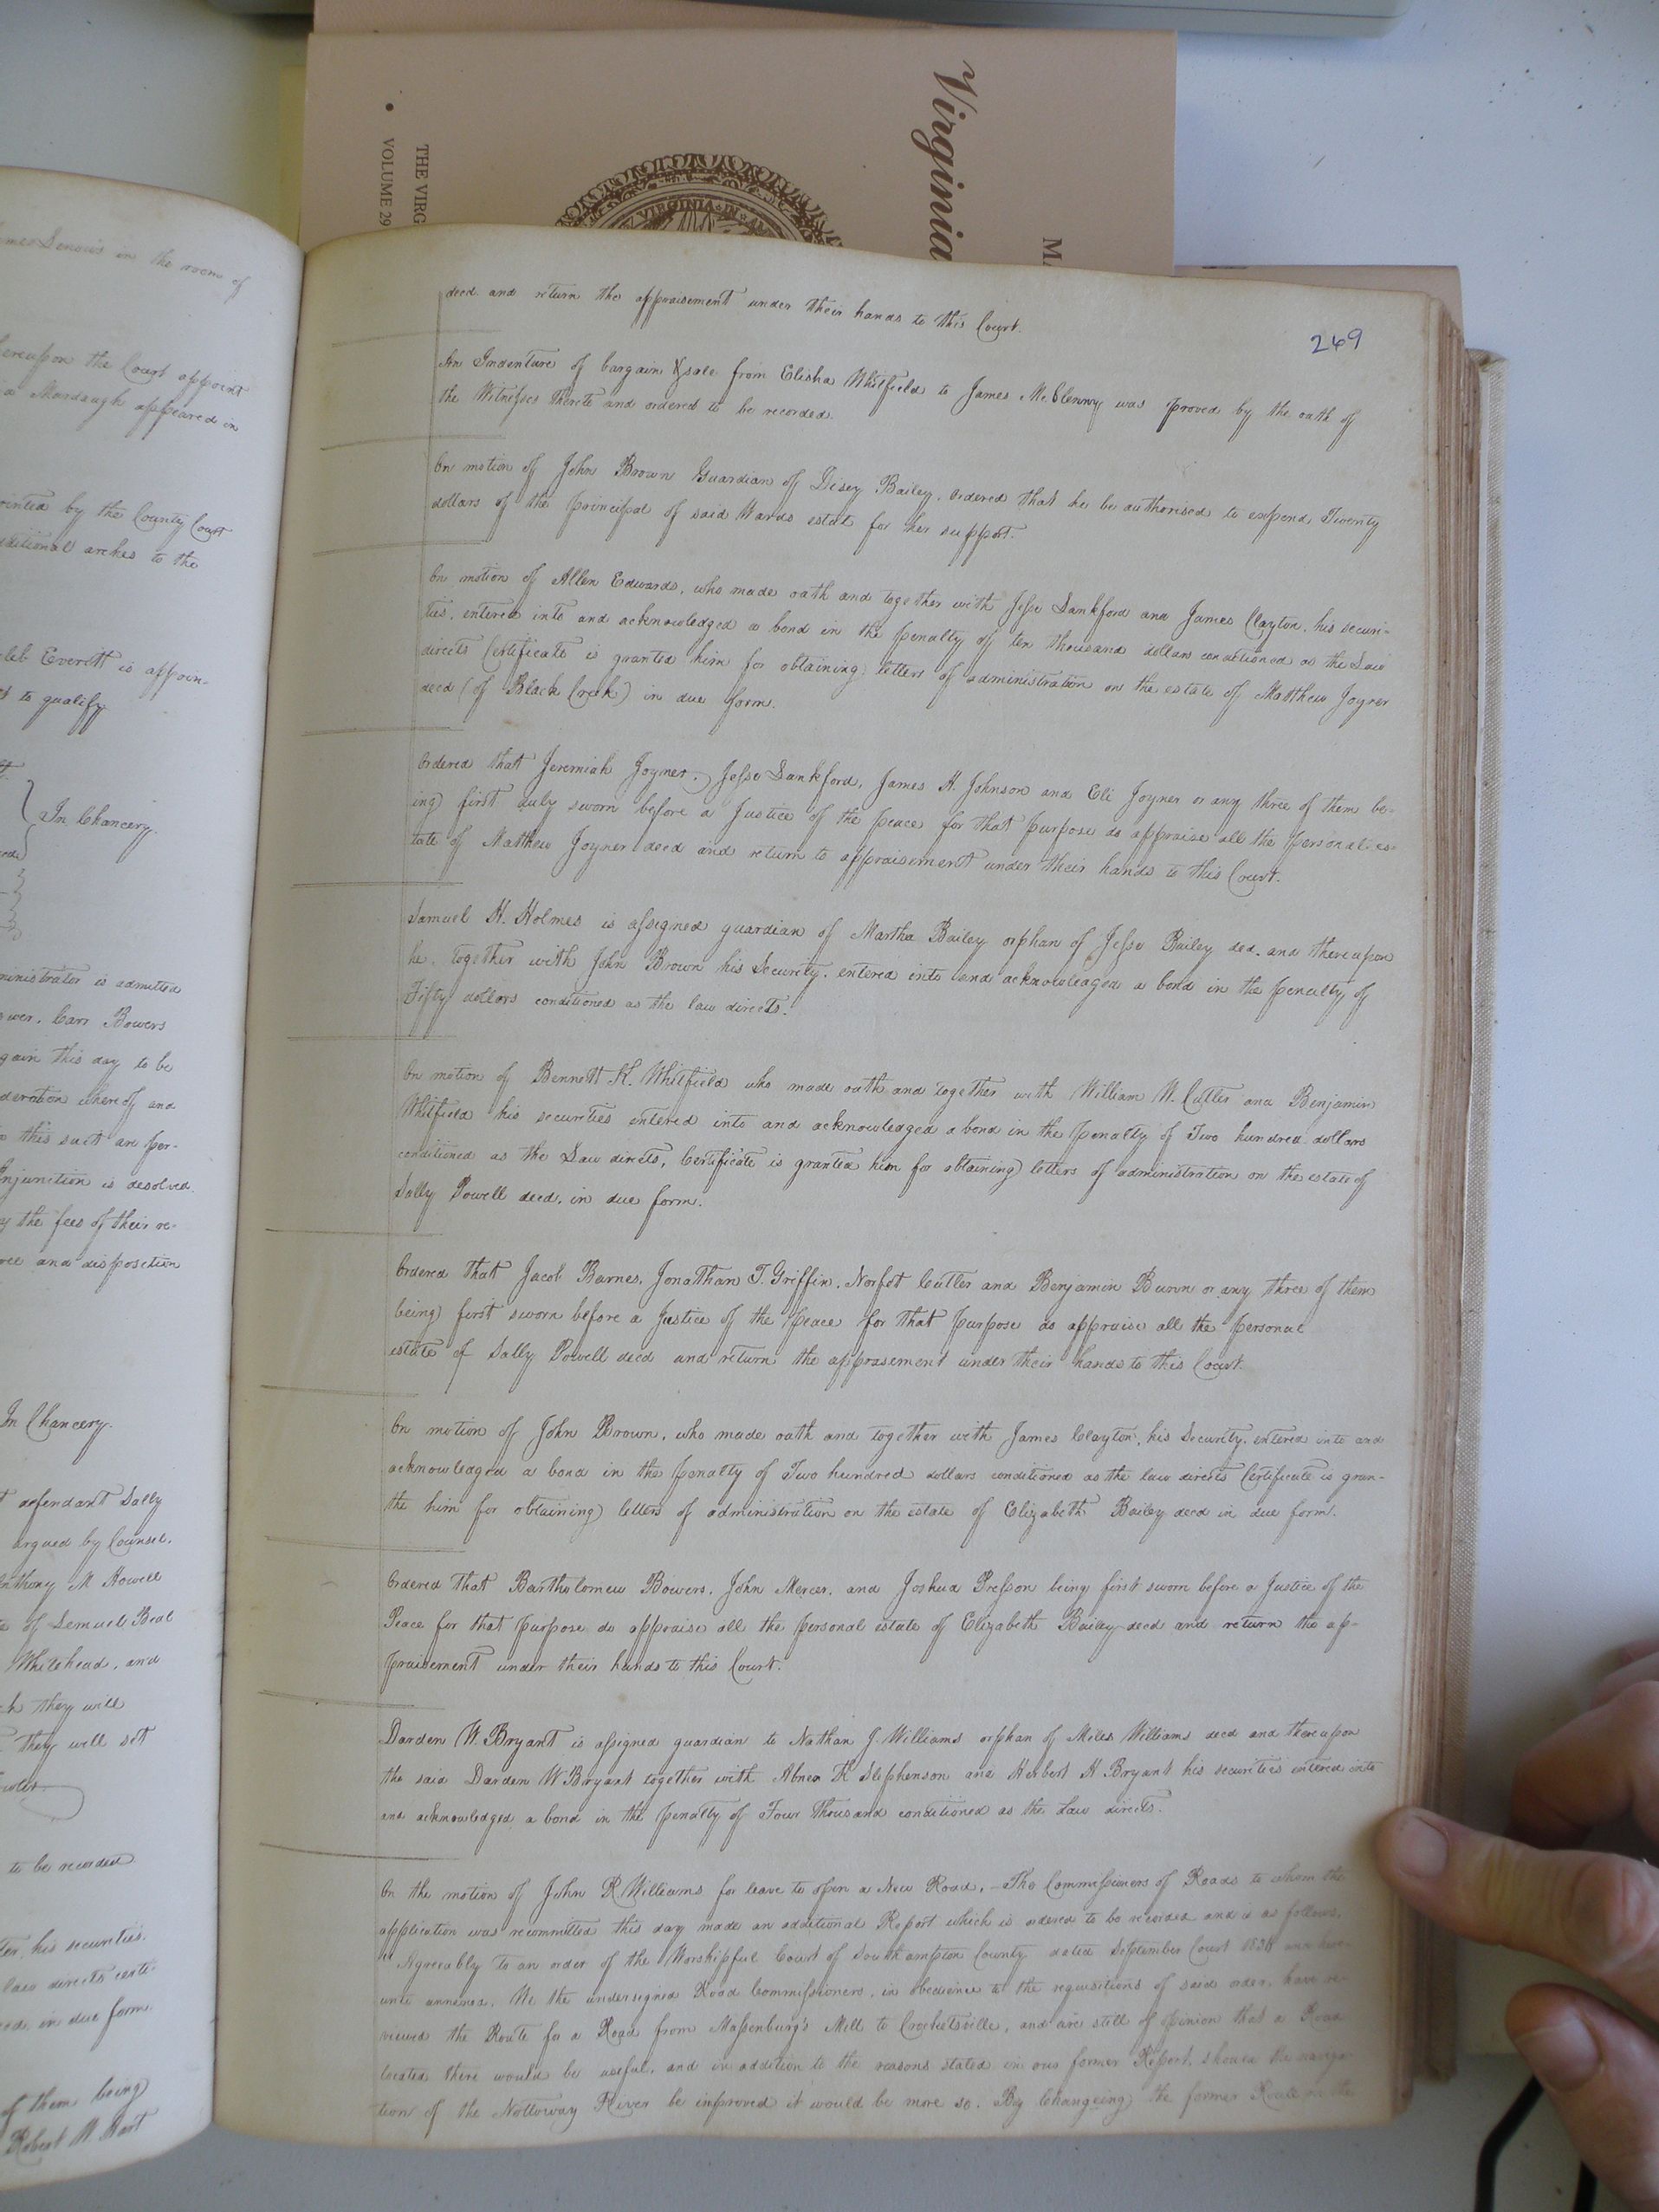 Virginia
M
THE VIRG
VOLUME 29
VIRGINIA IN
in the room of
ereupon the Court appoint
a Murdaugh appeared in
ointed by the County Court
ditional arches to the
leb Everett is appoin-
to qualify
In Chancery.
ministrator is admitted
wer. Carr Bowers
gain this day to be
deration whereof and
this suit are per-
Injunction is desolved.
the fees of their re-
and disposition
In Chancery.
defendant Sally
argued by Counsel.
nthony M Howell
of Lemuel Beal
Whitehead, and
they will
they will set
to be recorded
his securities.
law directs certi-
in due form
of them being
Robert W. Hart
249
deed and return the appraisement under their hands to this Court.
An Indenture of bargain & sale from Elisha Whitfield to James McClenny was proved by the oath of
the Witnesses thereto and ordered to be recorded.
On motion of John Brown Guardian of Disey Bailey, ordered that he be authorised to expend Twenty
dollars of the principal of said Wards estate for her support.
On motion of Allen Edwards, who made oath and together with Jesse Lankford and James Clayton, his securi-
ties, entered into and acknowledged a bond in the penalty of ten thousand dollars conditioned as the Law
directs Certificate is granted him for obtaining letters of administration on the estate of Matthew Joyner
decd (of Black Creek) in due form.
Ordered that Jeremiah Joyner, Jesse Lankford, James H. Johnson and Eli Joyner or any three of them be-
ing first duly sworn before a Justice of the peace for that purpose do appraise all the personal es-
tate of Matthew Joyner decd and return to appraisement under their hands to this Court.
Samuel H. Holmes is assigned guardian of Martha Bailey orphan of Jesse Bailey decd. and thereupon
he, together with John Brown his Security, entered into and acknowledged a bond in the penalty of
Fifty dollars conditioned as the law directs.
On motion of Bennett K. Whitfield who made oath and together with William W. Cutler and Benjamin
Whitfield his securities entered into and acknowledged a bond in the penalty of Two hundred dollars
conditioned as the Law directs, Certificate is granted him for obtaining letters of administration on the estate of
Sally Powell decd. in due form.
Ordered that Jacob Barnes, Jonathan T. Griffin, Norfet Cutler and Benjamin Bunn or any three of them
being first sworn before a Justice of the peace for that purpose do appraise all the personal
estate of Sally Powell decd and return the apprasement under their hands to this Court.
On motion of John Brown, who made oath and together with James Clayton, his Security, entered into and
acknowledged a bond in the penalty of Two hundred dollars conditioned as the law directs Certificate is gran-
the him for obtaining letters of administration on the estate of Elizabeth Bailey decd in due form.
Ordered that Bartholomew Bowers, John Mercer, and Joshua Presson being first sworn before a Justice of the
Peace for that purpose do appraise all the personal estate of Elizabeth Bailey decd and return the ap-
praisement under their hands to this Court.
Darden W. Bryant is assigned guardian to Nathan J. Williams orphan of Miles Williams decd and thereupon
the said Darden W Bryant together with Abner K Stephenson and Herbert H Bryant his securities entered into
and acknowledged a bond in the penalty of Four Thousand conditioned as the Law directs.
On the motion of John R Williams for leave to open a New Road,—The Commissioners of Roads to whom the
application was recommitted this day made an additional Report which is ordered to be recorded and is as follows.
"Agreeably to an order of the Worshipful Court of Southampton County dated September Court and here-
unto annexed. We the undersigned Road Commissioners, in obedience to the requisitions of said order, have re-
viewed the Route for a Road from Massenburg's Mill to Crocketsville, and are still of opinion that a Road
located there would be useful, and in addition to the reasons stated in our former Report, should the naviga-
tion of the Nottoway River be improved it would be more so. By Changeing the former Route